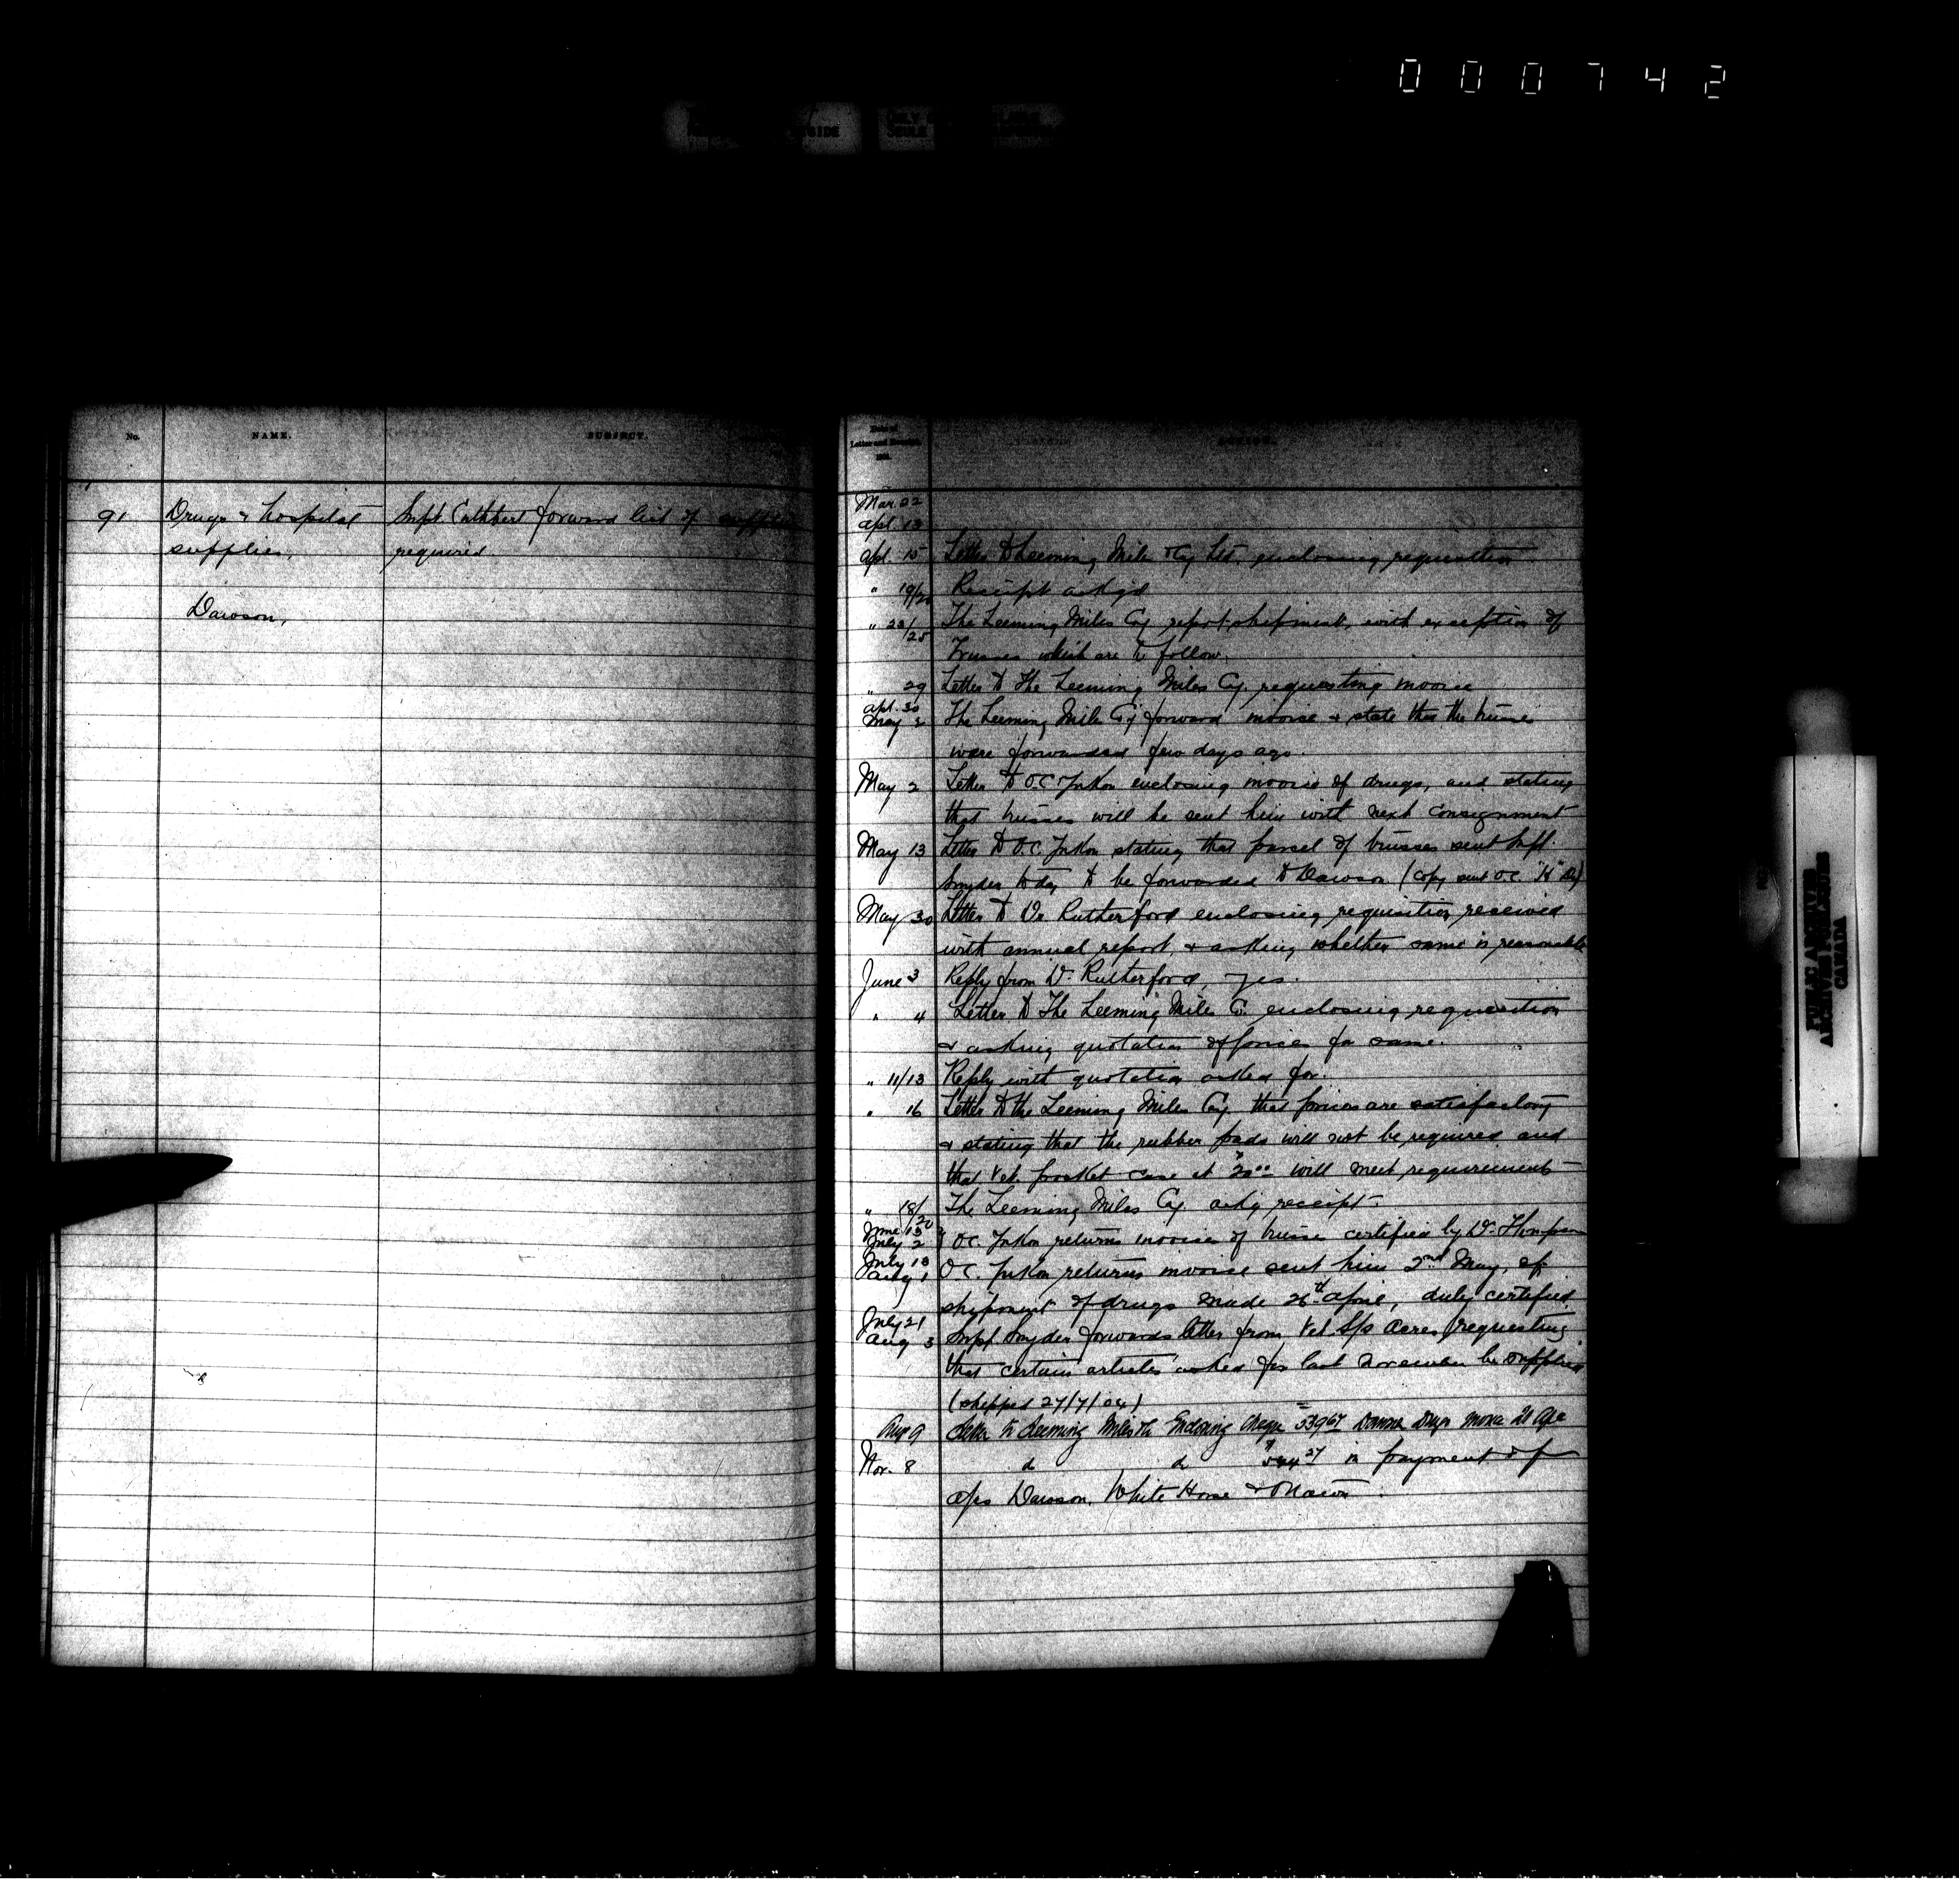 000742
No. NAME. SUBJECT.
91 Drugs & hospital Supt. Cuthbert forward list of supplies
supplies, required.
Dawson,
Date of
Letter and Receipt.
Mar 22
Apl. 13
Apl. 15 Letter to Leeming Miles & Coy Ltd. enclosing requisition
" 19/20 Receipt ackgd
" 23/25 The Leeming Miles Coy report shipment, with exception of
Trusses which are to follow.
" 29 Letter to The Leeming Miles Coy requesting invoice
Apl. 30
May 2 The Leeming Miles Coy forward invoice & state that the trusses
were forwarded few days ago.
May 2 Letter to O.C. Yukon enclosing invoice of drugs, and stating
that trusses will be sent him with next consignment
May 13 Letter to O.C. Yukon stating that parcel of trusses sent Supt.
Snyder today to be forwarded to Dawson (copy sent O.C. "H" Dv)
May 30 Letter to Dr Rutherford enclosing requisition received
with annual report, & asking whether same is reasonable
June 3 Reply from Dr. Rutherford, yes.
" 4 Letter to The Leeming Miles Co. enclosing requisition
& asking quotation of prices for same.
" 11/13 Reply with quotation asked for.
" 16 Letter to the Leeming Miles Coy that prices are satisfactory
& stating that the rubber pads will not be required and
that Vet. pocket case at $20.00 will meet requirements
" 18/20 The Leeming Miles Coy. ackg receipt.
June 15
July 2 O.C. Yukon returns invoice of trusses certified by Dr. Thompson
July 18
Aug 1 O.C. Yukon returns invoice sent him 2nd May, of
shipment of drugs made 26th April, duly certified
July 21
Aug 3 Supt Snyder forwards letter from Vet. S/s Acres requesting
that certain articles asked for last November be supplied
(shipped 27/7/04)
Aug 9 Letter to Leeming Miles Co Enclosing Cheque 539.67 Dawson Drugs
Nov. 8 do do in payment of
a/cs Dawson, White Horse &
PUBLIC ARCHIVES
ARCHIVES PUBLIQUES
CANADA